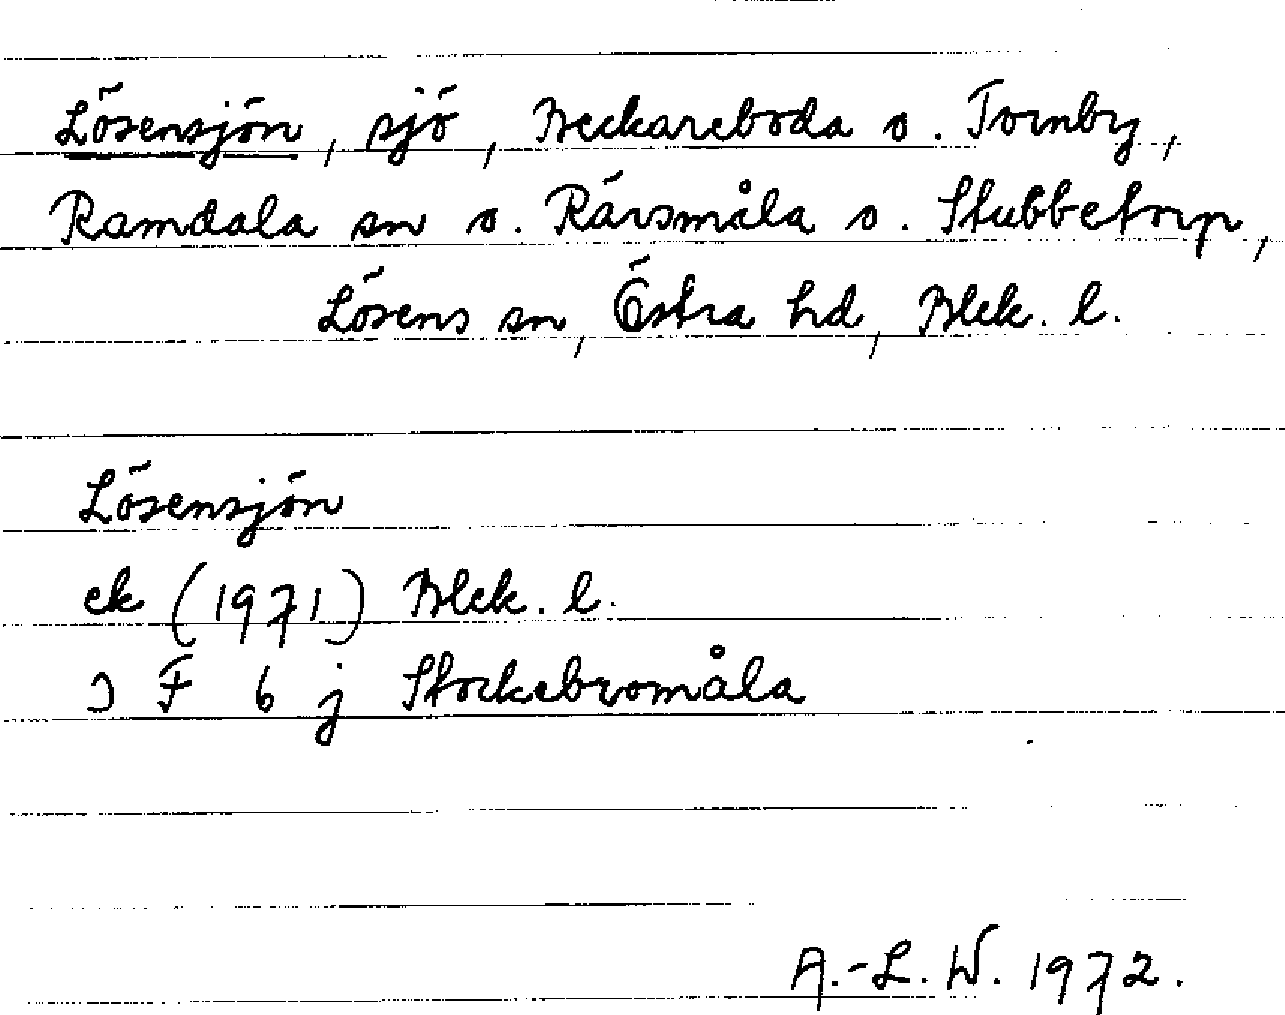 Lösensjön, sjö, Beckareboda o. Tornby,
Ramdala sn o. Rärsmåla o. Stubbetorp,
Lösens sn, Östra hd, Blek. l.
Lösensjön
ek (1971) Blek. l.
3 F 6 j Stockebromåla
A.-L. W. 1972.